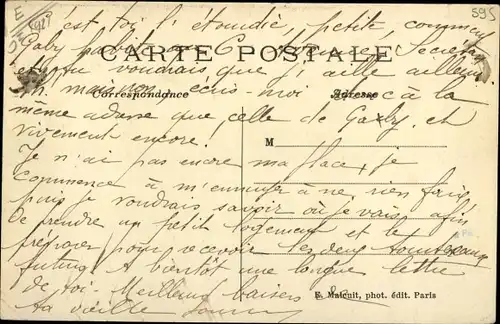 c'est toi l'étourdie, petite, comment
Gaby
CARTE POSTALE
et tu voudrais que j'aille ailleurs
écris-moi donc à la
Correspondance
Adresse
même adresse que celle de Gaby, et
vivement encore.
M
Je n'ai pas encore ma place, je
commence à m'ennuyer à ne rien faire
puis je voudrais savoir où je vais, afin
de prendre un petit logement et le
préparer pour recevoir les deux
futurs. A bientôt une longue lettre
de toi. Meilleurs baisers
E. Malcuit, phot. édit. Paris
Ta vieille